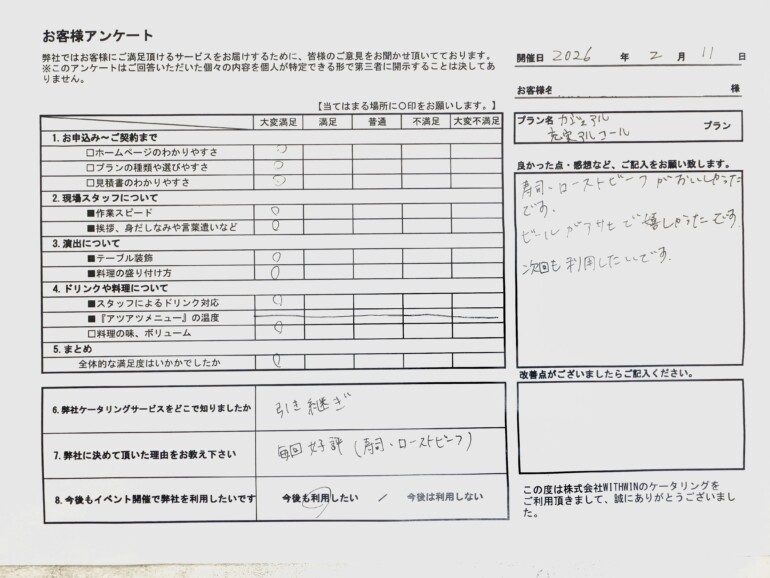 お客様アンケート
弊社ではお客様にご満足頂けるサービスをお届けするために、皆様のご意見をお聞かせ頂いております。
※このアンケートはご回答いただいた個々の内容を個人が特定できる形で第三者に開示することは決してあ
りません。
開催日 2026 年 2 月 11 日
お客様名 様
プラン名 カジュアル
充実アルコール プラン
【当てはまる場所に〇印をお願いします。】
大変満足 満足 普通 不満足 大変不満足
1.お申込み～ご契約まで
□ホームページのわかりやすさ
□プランの種類や選びやすさ
□見積書のわかりやすさ
2.現場スタッフについて
■作業スピード
■挨拶、身だしなみや言葉遣いなど
3.演出について
■テーブル装飾
■料理の盛り付け方
4.ドリンクや料理について
■スタッフによるドリンク対応
■『アツアツメニュー』の温度
□料理の味、ボリューム
5.まとめ
全体的な満足度はいかかでしたか
良かった点・感想など、ご記入をお願い致します。
寿司・ローストビーフがおいしかった
です。
ビールがアサヒで嬉しかったです
次回も利用したいです。
改善点がございましたらご記入ください。
6.弊社ケータリングサービスをどこで知りましたか 引き継ぎ
7.弊社に決めて頂いた理由をお教え下さい 毎回好評(寿司・ローストビーフ)
8.今後もイベント開催で弊社を利用したいです 今後も利用したい / 今後は利用しない
この度は株式会社WITHWINのケータリングを
ご利用頂きまして、誠にありがとうございまし
た。